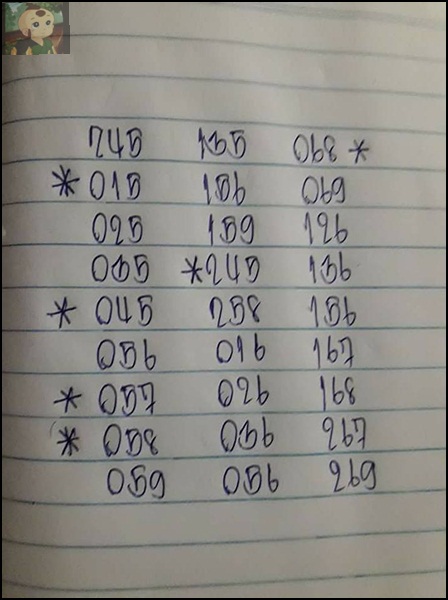 245 135 068 *
* 015 156 069
025 159 126
035 * 245 136
* 045 258 156
056 016 167
* 057 026 168
* 058 036 267
059 056 269